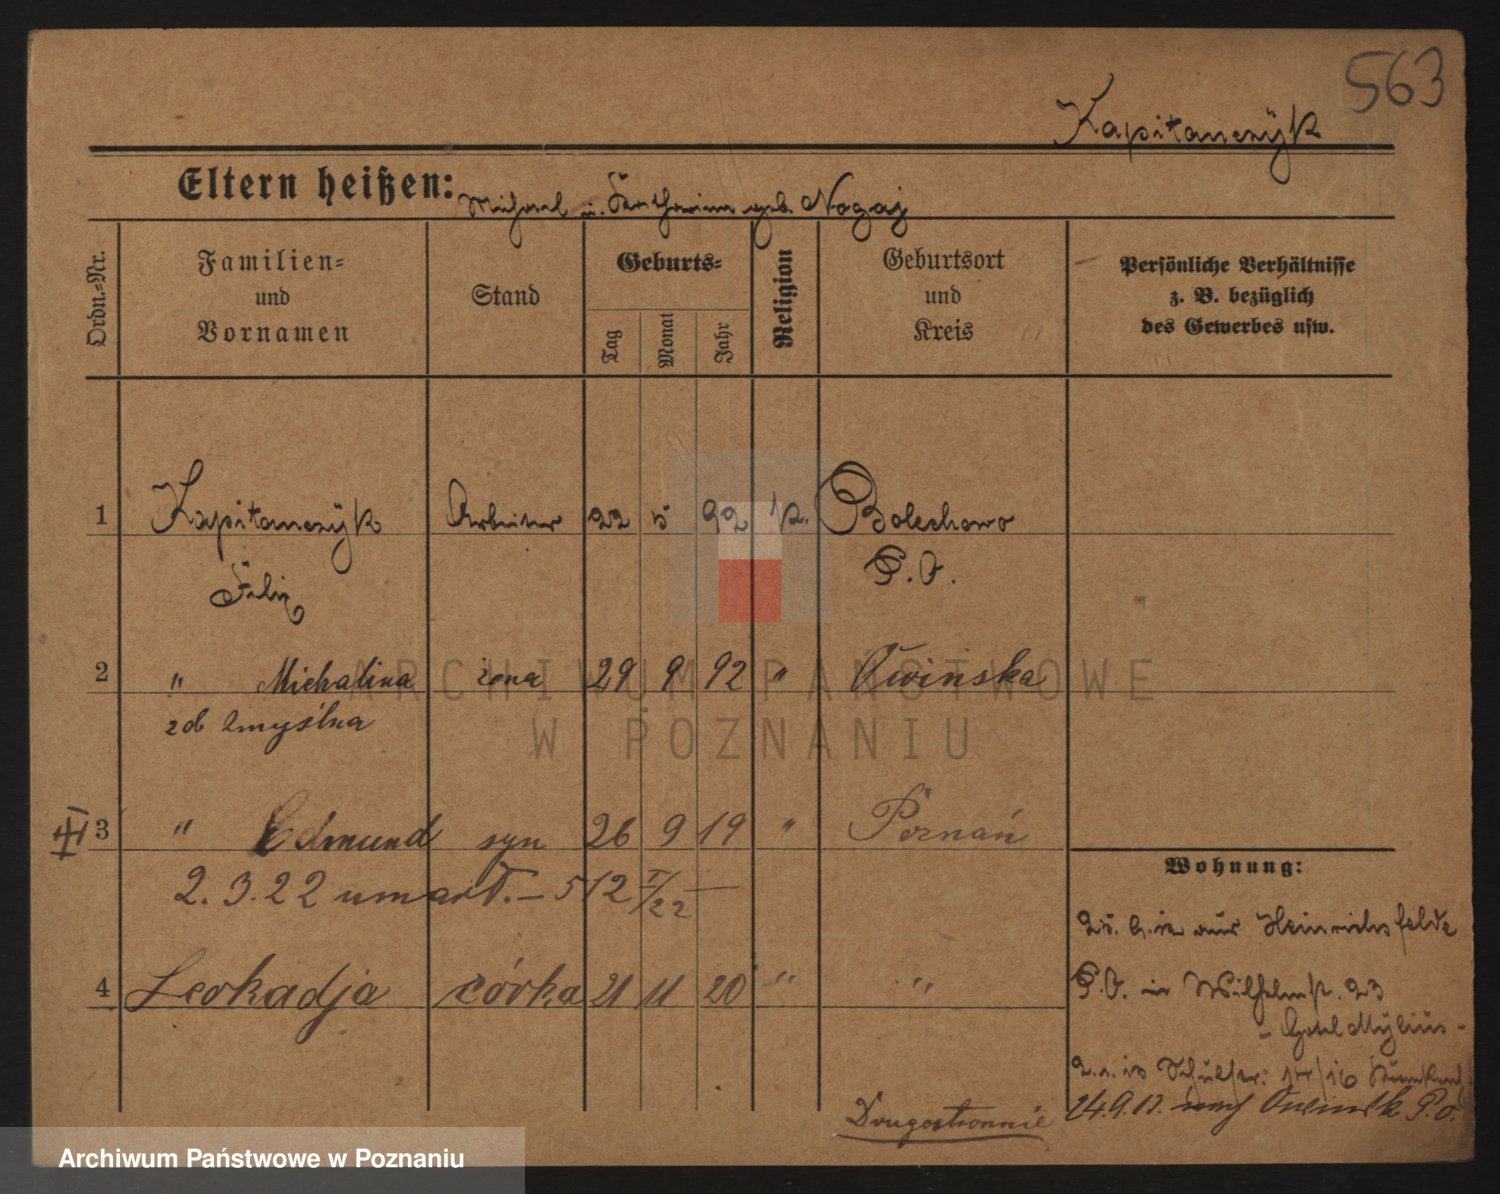 563
Kapitanczÿk
Eltern heißen: Michael u. Katharina geb. Nogaj
Ordn.=Nr.
Familien=
und
Vornamen
Stand
Geburts=
Tag
Monat
Jahr
Religion
Geburtsort
und
Kreis
Persönliche Verhältnisse
z. B. bezüglich
des Gewerbes usw.
1 Kapitanczÿk Arbeiter 22 5 92 k. Bolechowo
Felix P. O.
2 " Michalina żona 29 9 92 " Owińska
zd Zmyślna
III 3 " Edmund syn 26 9 19 " Poznań
2.3.22 umarł. – 512 I/22 —
Wohnung:
aus Heinrichsfelde
4 Leokadja córka 21 11 20 " "
P.O. in Wilhelmstr. 23
- Hotel Mÿlius -
Schulstr. 14/16
24.9.17. nach Owinsk P.O.
Drugostronnie
ARCHIWUM PAŃSTWOWE
W POZNANIU
Archiwum Państwowe w Poznaniu